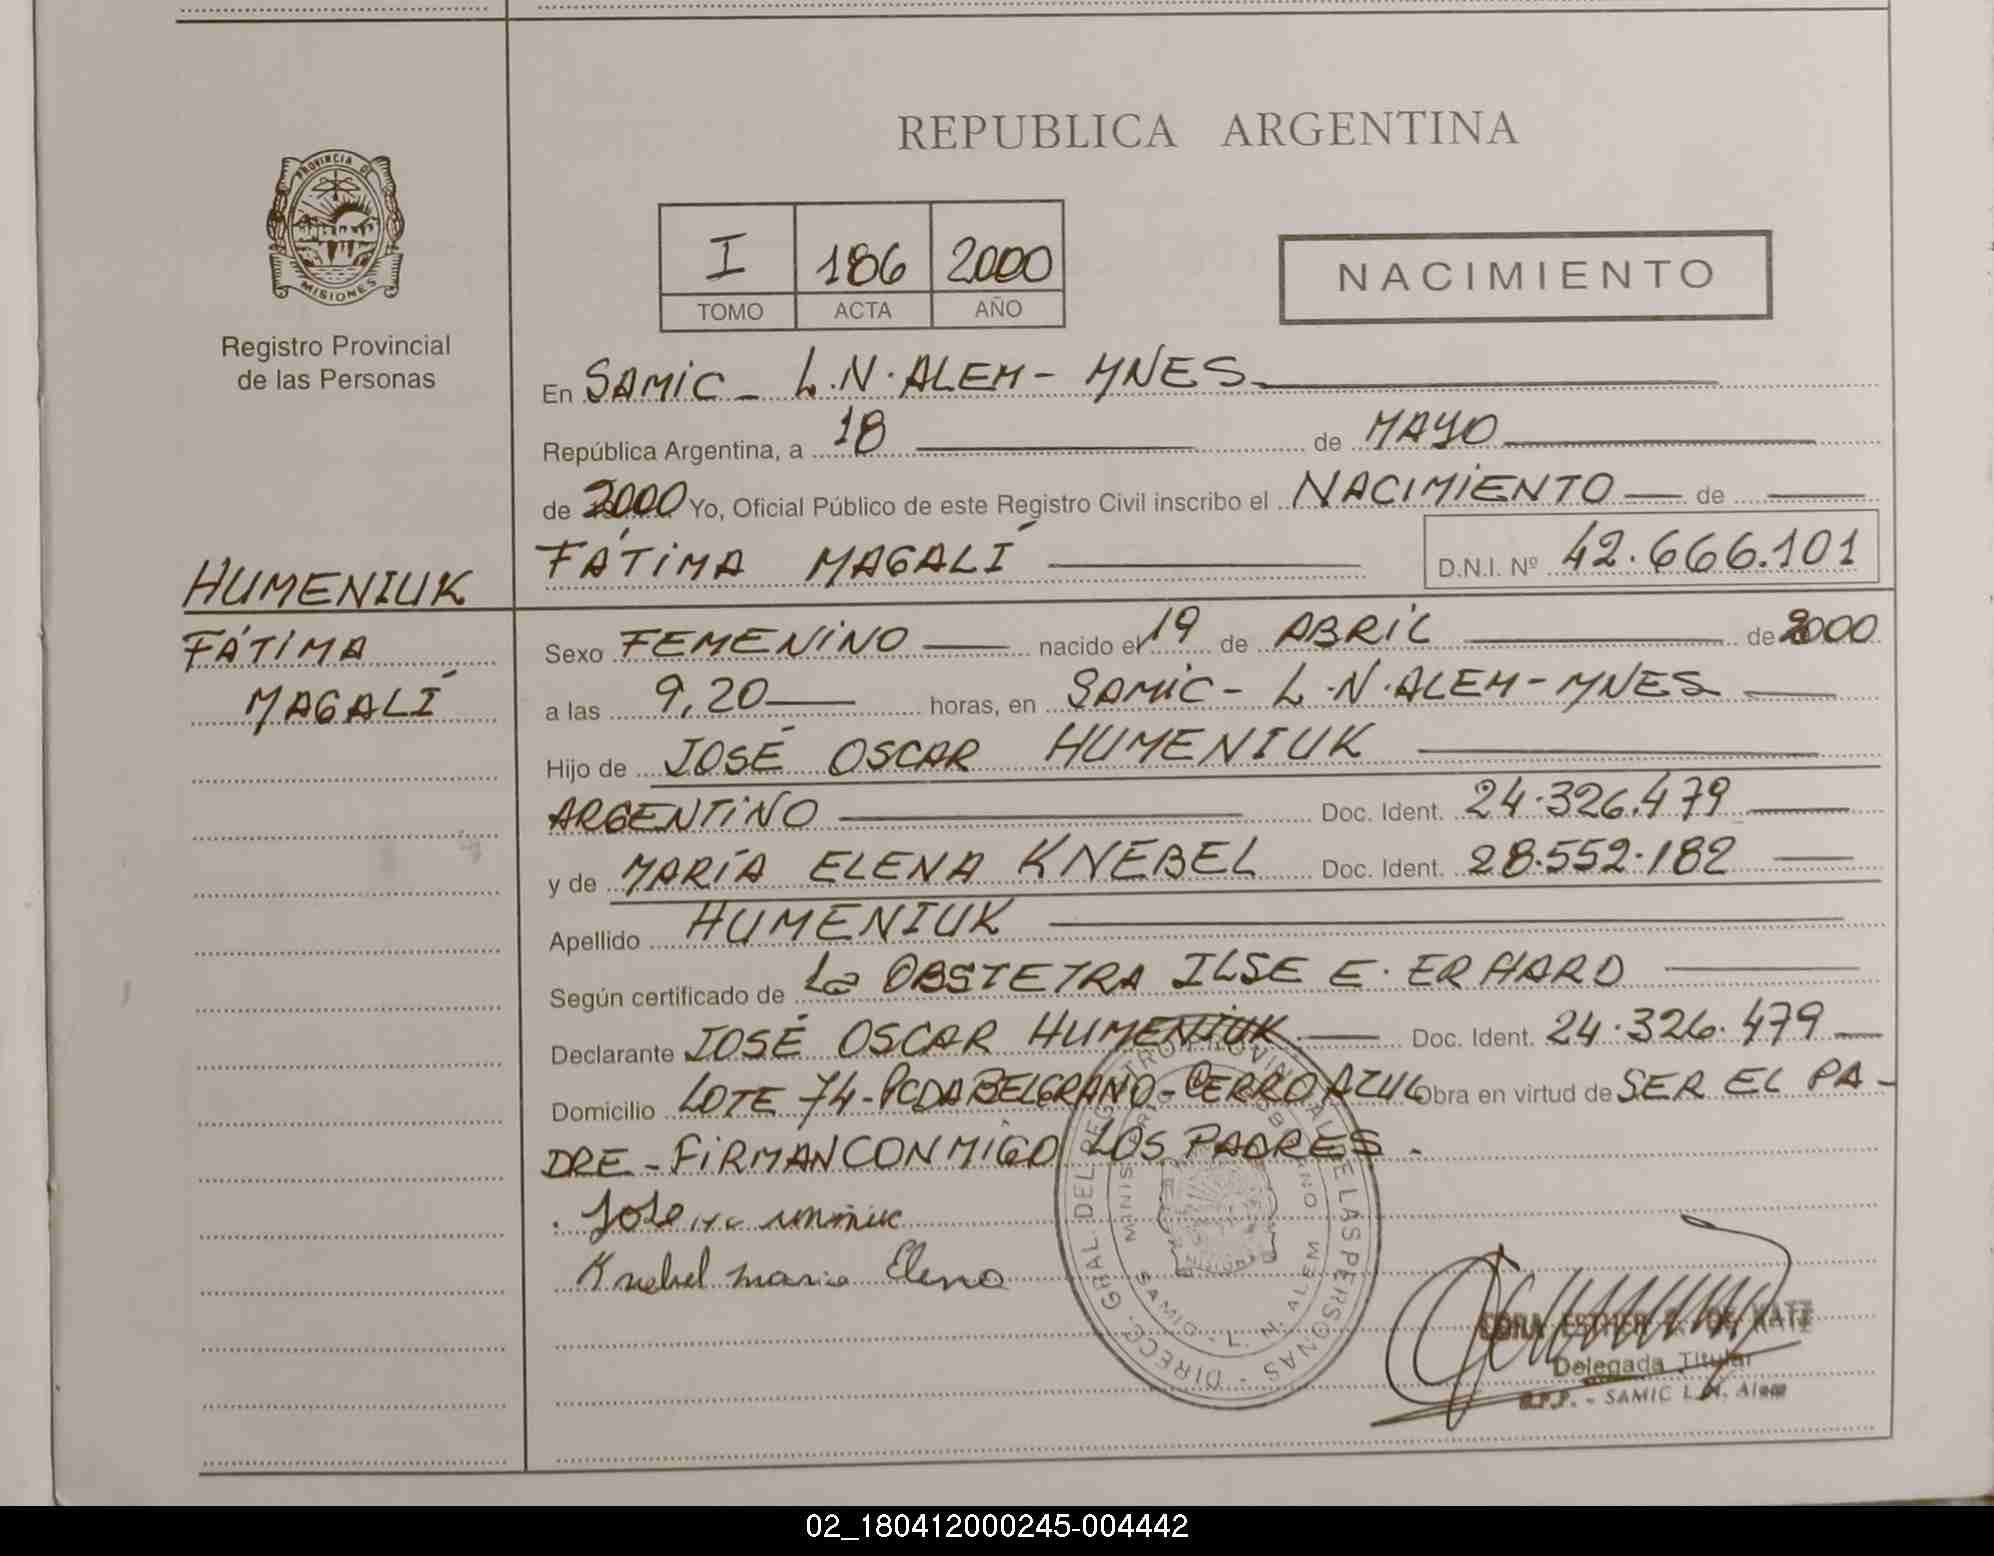 REPUBLICA ARGENTINA
PROVINCIA DE
MISIONES
Registro Provincial
de las Personas
I 186 2000
TOMO ACTA AÑO
NACIMIENTO
En SAMIC - L.N. ALEM - MNES
República Argentina, a 18 de MAYO
de 2000 Yo, Oficial Público de este Registro Civil inscribo el NACIMIENTO de
FÁTIMA MAGALÍ D.N.I. Nº 42.666.101
HUMENIUK
FÁTIMA
MAGALÍ
Sexo FEMENINO nacido el 19 de ABRIL de 2000
a las 9,20 horas, en SAMIC - L.N. ALEM - MNES
Hijo de JOSÉ OSCAR HUMENIUK
ARGENTINO Doc. Ident. 24.326.479
y de MARÍA ELENA KNEBEL Doc. Ident. 28.552.182
Apellido HUMENIUK
Según certificado de La OBSTETRA ILSE E. ERHARD
Declarante JOSÉ OSCAR HUMENIUK Doc. Ident. 24.326.479
Domicilio LOTE 74 - PCDA BELGRANO - CERRO AZUL Obra en virtud de SER EL PA-
DRE - FIRMAN CONMIGO LOS PADRES.
Jose
Knebel maria Elena
DIRECC. GRAL. DEL REGISTRO PROVINCIAL DE LAS PERSONAS
SAMIC - L. N. ALEM
ESTHER DE KATZ
Delegada Titular
SAMIC L.N. Alem
02_180412000245-004442